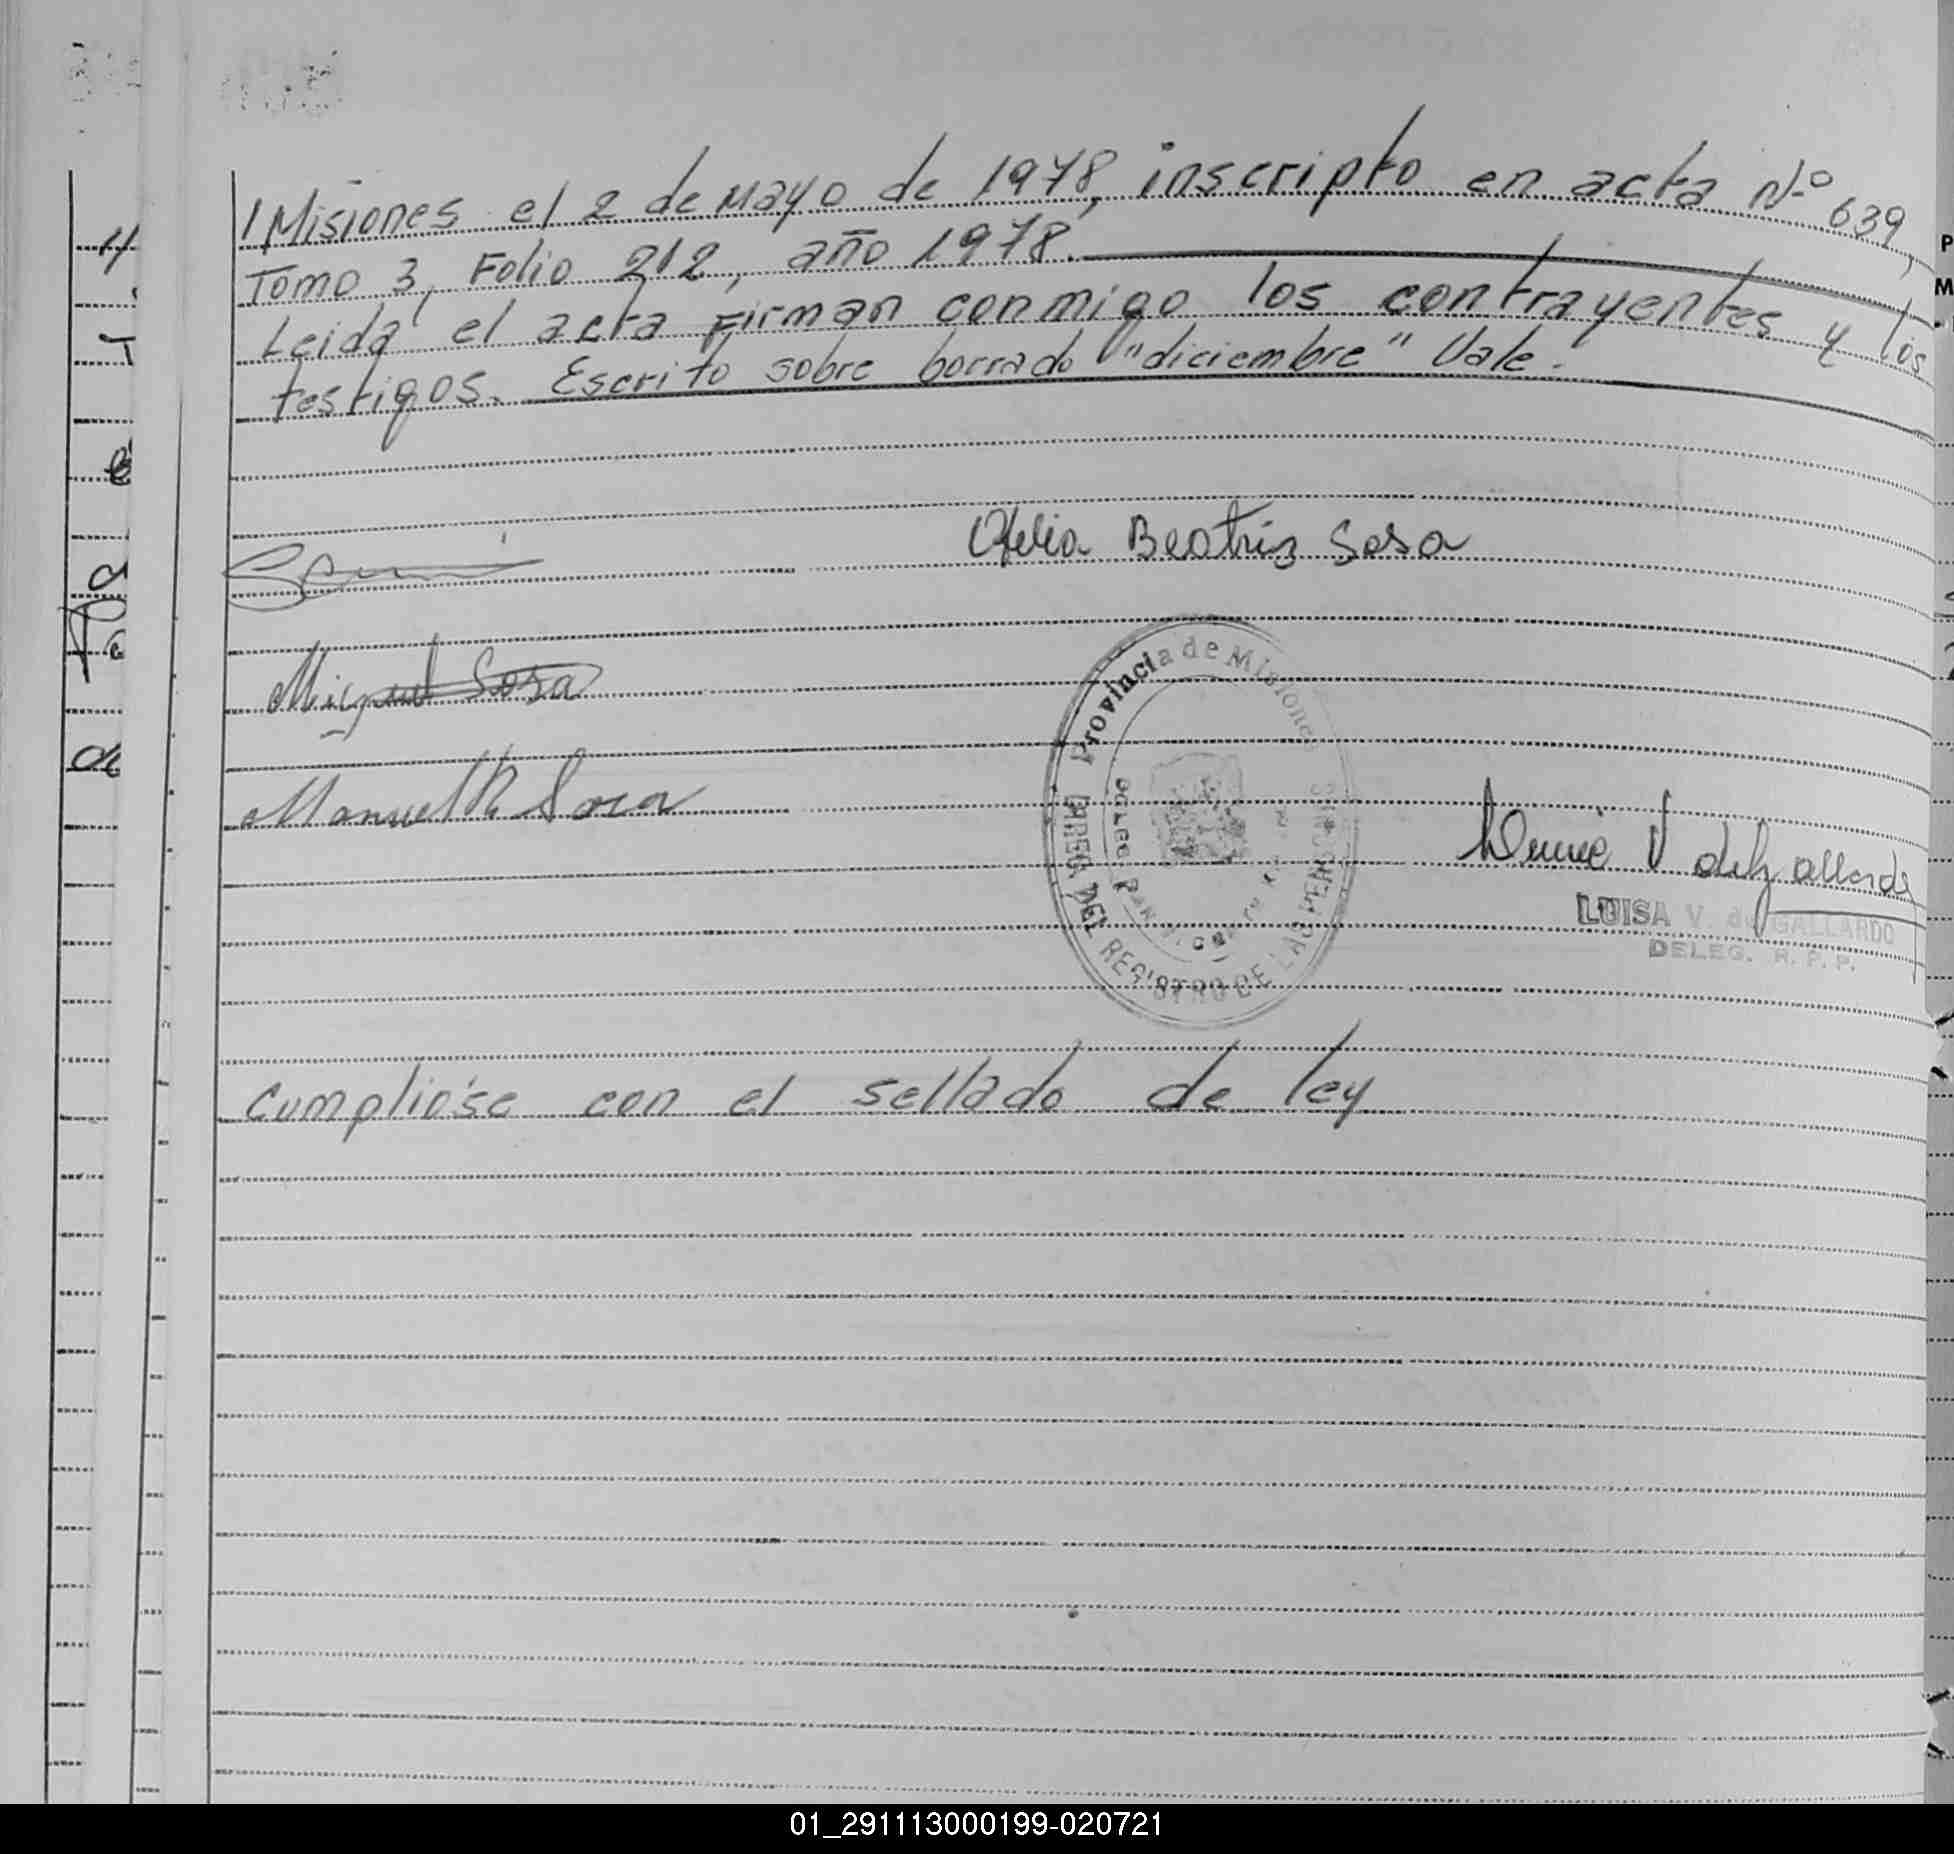 Misiones el 2 de Mayo de 1978, inscripto en acta Nº 639,
Tomo 3, Folio 212, año 1978.
Leida el acta firman conmigo los contrayentes y los
testigos. Escrito sobre borrado "diciembre" Vale.
Ofelia Beatriz Sosa
Miguel Sosa
Manuel R Sosa
Provincia de Misiones
DEL REGISTRO DE LAS PERSONAS
LUISA V. de GALLARDO
DELEG. R. P. P.
Cumplióse con el sellado de ley
01_291113000199-020721